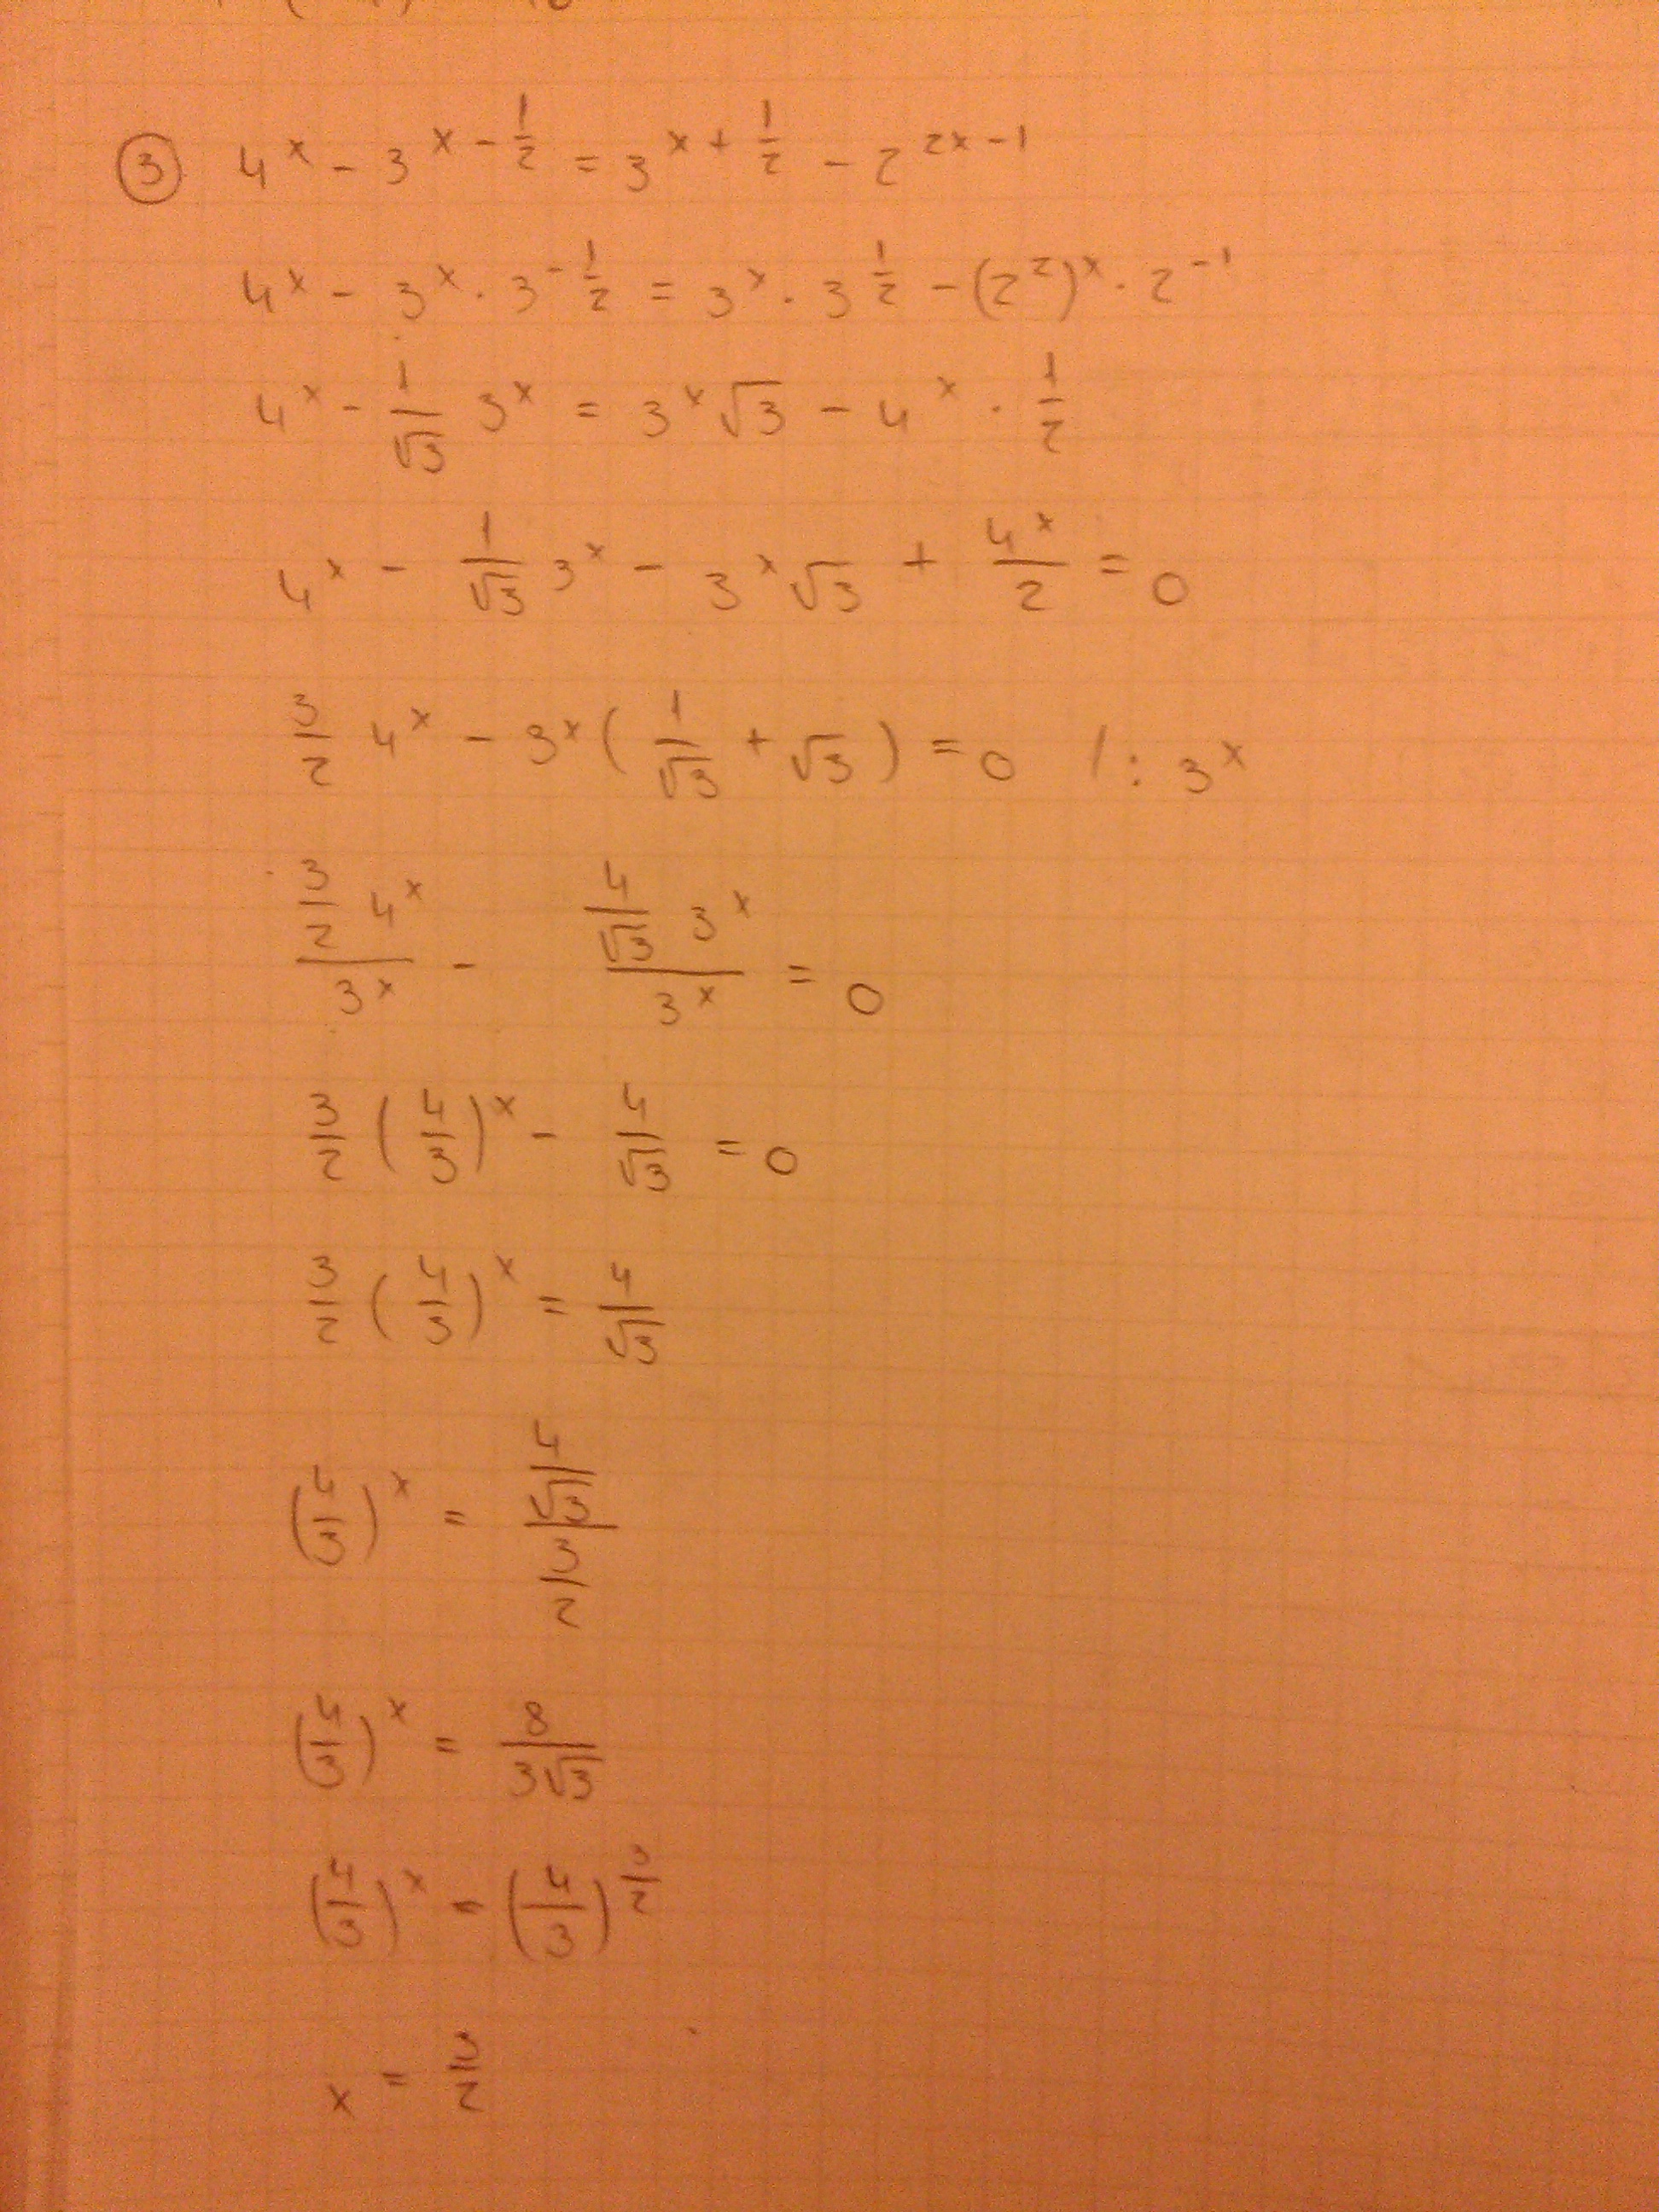 ③ 4^x - 3^(x - 1/2) = 3^(x + 1/2) - 2^(2x - 1)
4^x - 3^x · 3^(-1/2) = 3^x · 3^(1/2) - (2^2)^x · 2^(-1)
4^x - 1/√3 3^x = 3^x √3 - 4^x · 1/2
4^x - 1/√3 3^x - 3^x √3 + 4^x/2 = 0
3/2 4^x - 3^x (1/√3 + √3) = 0 / : 3^x
(3/2 4^x)/3^x - (4/√3 3^x)/3^x = 0
3/2 (4/3)^x - 4/√3 = 0
3/2 (4/3)^x = 4/√3
(4/3)^x = (4/√3)/(3/2)
(4/3)^x = 8/(3√3)
(4/3)^x = (4/3)^(3/2)
x = 3/2